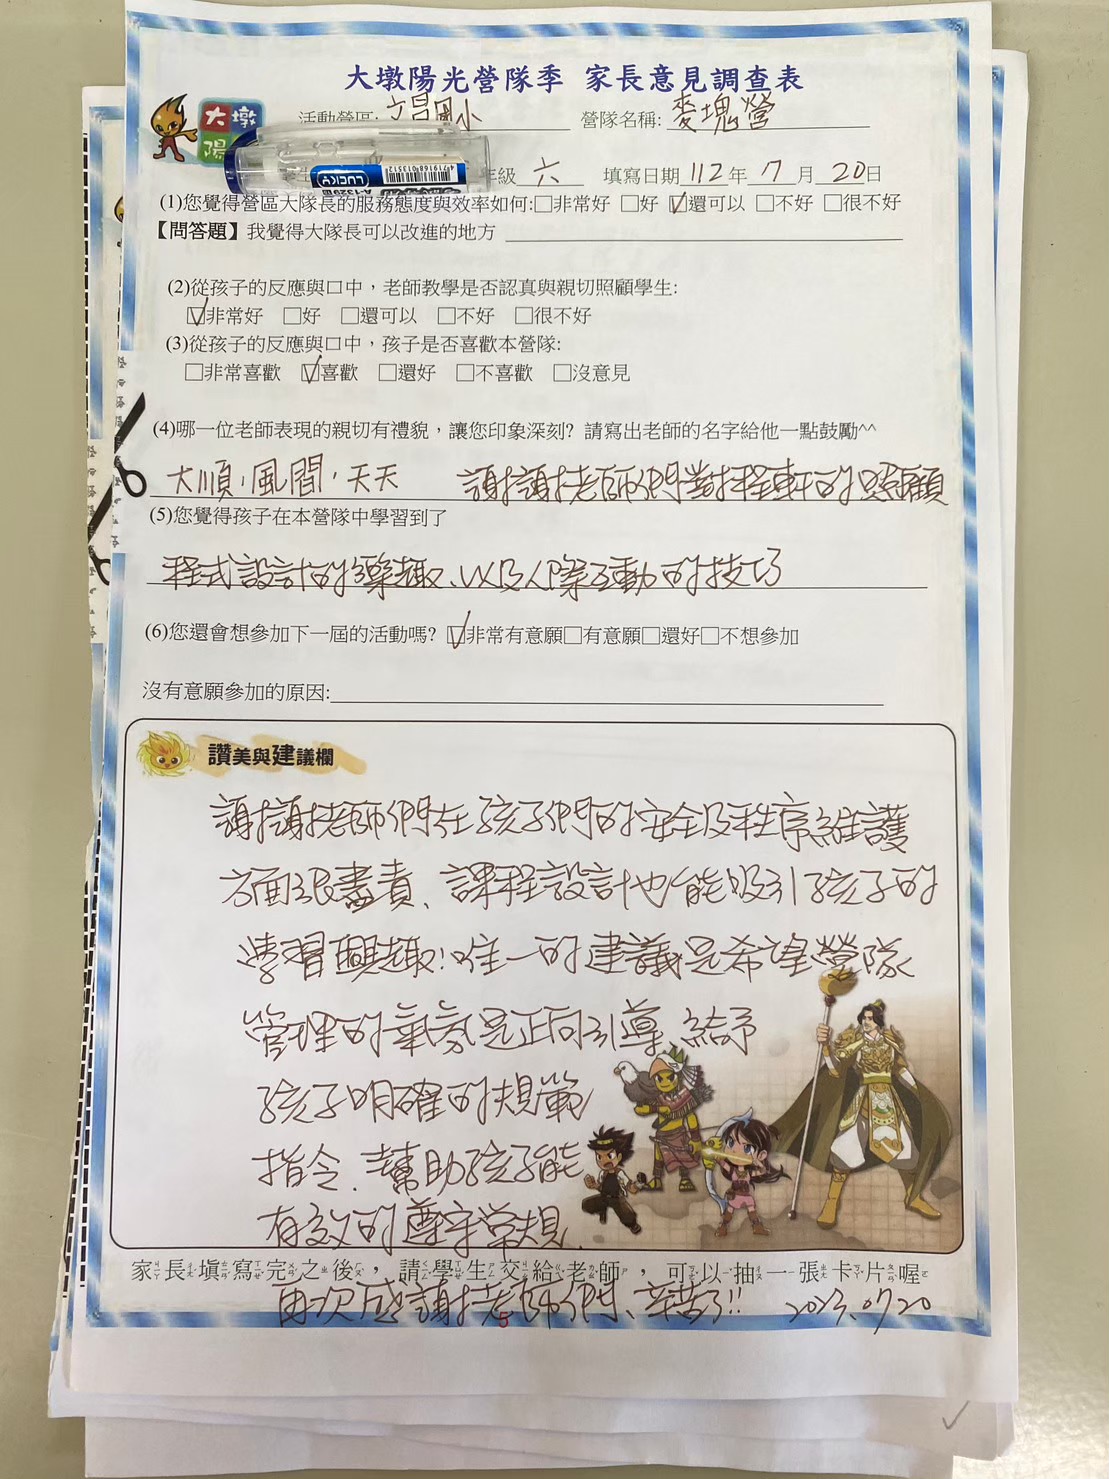 大墩陽光營隊季 家長意見調查表
大墩
陽
活動營區: 文昌國小 營隊名稱: 麥塊營
年級 六 填寫日期 112 年 7 月 20 日
LUCKY
A-1329
4719168013512
(1)您覺得營區大隊長的服務態度與效率如何:□非常好 □好 ☑還可以 □不好 □很不好
【問答題】我覺得大隊長可以改進的地方
(2)從孩子的反應與口中，老師教學是否認真與親切照顧學生:
☑非常好 □好 □還可以 □不好 □很不好
(3)從孩子的反應與口中，孩子是否喜歡本營隊:
□非常喜歡 ☑喜歡 □還好 □不喜歡 □沒意見
(4)哪一位老師表現的親切有禮貌，讓您印象深刻? 請寫出老師的名字給他一點鼓勵^^
大順、風間、天天 謝謝老師們對程軒的照顧
(5)您覺得孩子在本營隊中學習到了
程式設計的樂趣、以及人際互動的技巧
(6)您還會想參加下一屆的活動嗎? ☑非常有意願□有意願□還好□不想參加
沒有意願參加的原因:
讚美與建議欄
謝謝老師們在孩子們的安全及秩序維護
方面很盡責、課程設計也能吸引孩子的
學習興趣!唯一的建議是希望營隊
管理的氣氛是正向引導、給予
孩子明確的規範
指令、幫助孩子能
有效的遵守常規、
家長填寫完之後，請學生交給老師，可以抽一張卡片喔
再次感謝老師們、辛苦了!! 2023.07.20